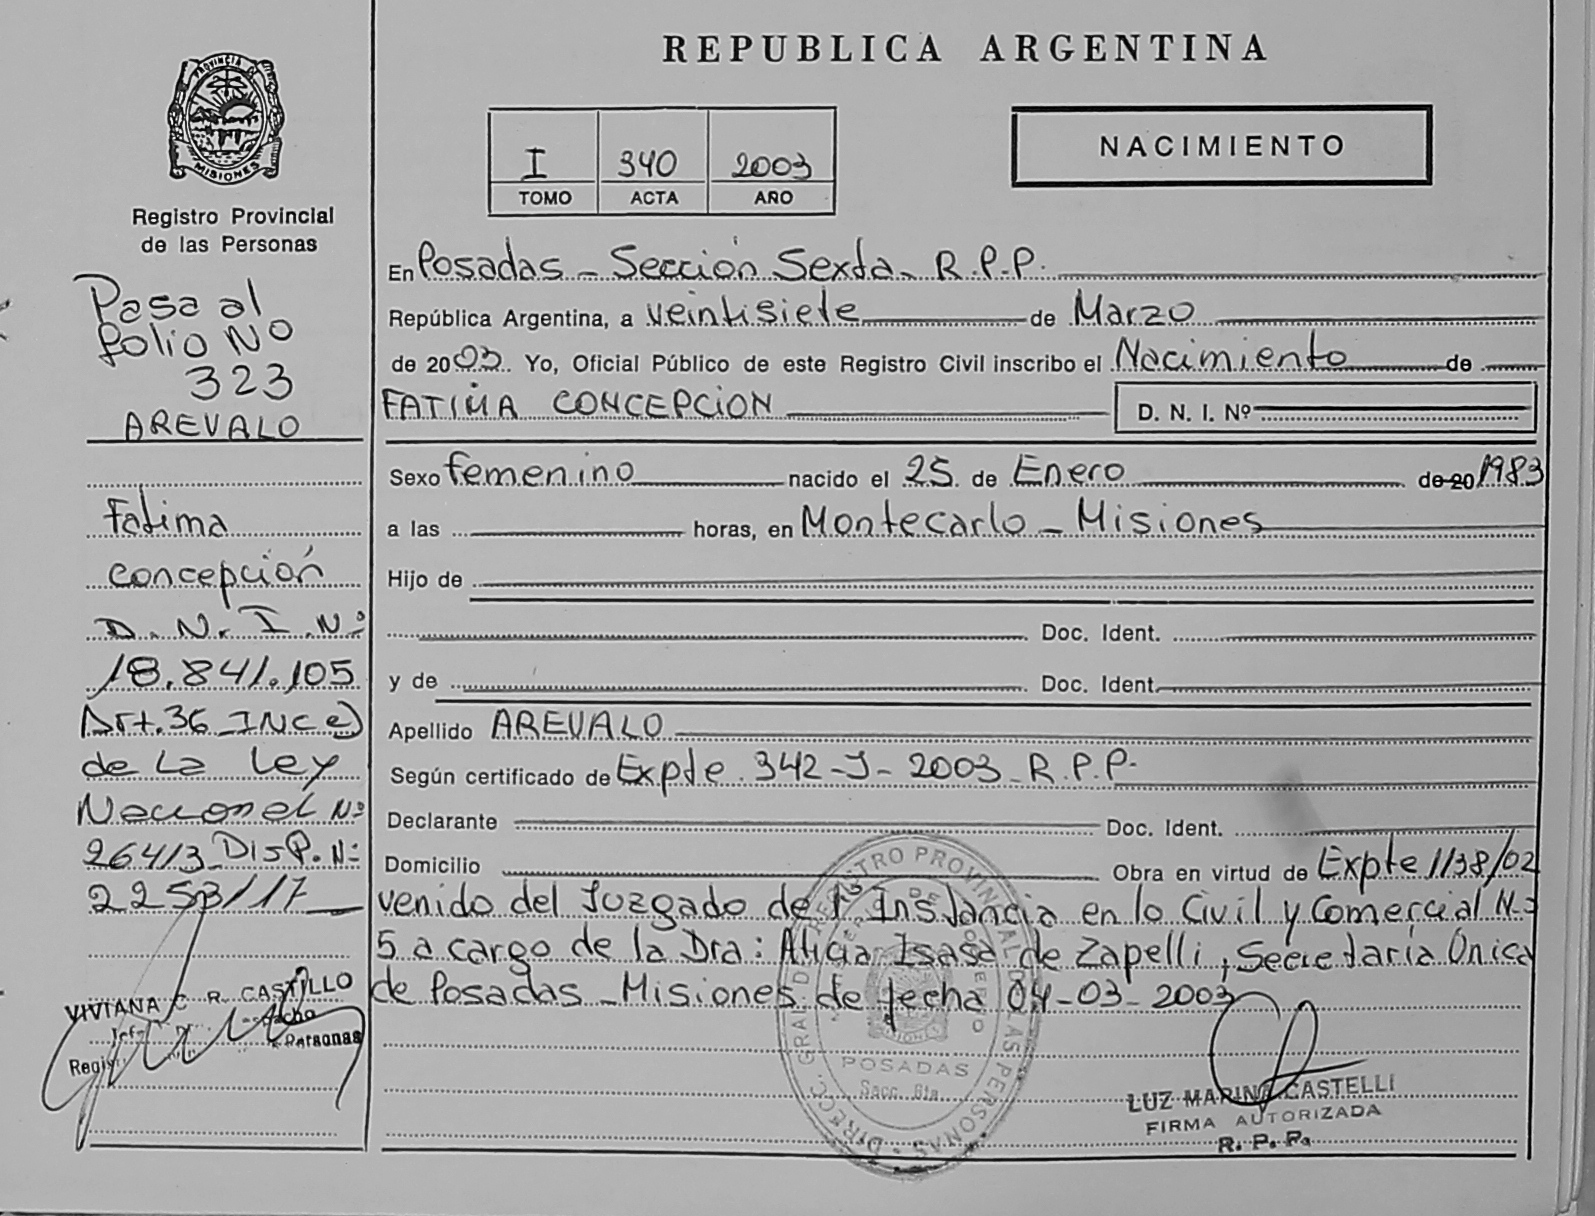 REPUBLICA ARGENTINA
PROVINCIA D
MISIONES
Registro Provincial
de las Personas
I 340 2003
TOMO ACTA AÑO
NACIMIENTO
Pasa al
folio Nº
323
AREVALO
Fatima
Concepción
D.N.I.Nº
18.841.105
Art.36 INC e)
de la ley
Nacional Nº
26413 Disp. Nº
2253/17
VIVIANA C. R. CASTILLO
Personas
En Posadas - Sección Sexta - R.P.P.
República Argentina, a veintisiete de Marzo
de 2003. Yo, Oficial Público de este Registro Civil inscribo el Nacimiento de
FATIMA CONCEPCION D. N. I. Nº
Sexo femenino nacido el 25 de Enero de 20 1983
a las horas, en Montecarlo - Misiones
Hijo de
Doc. Ident.
y de Doc. Ident.
Apellido AREVALO
Según certificado de Expte. 342-J-2003-R.P.P.
Declarante Doc. Ident.
Domicilio Obra en virtud de Expte 1138/02
venido del Juzgado de 1º Instancia en lo Civil y Comercial Nº
5 a cargo de la Dra: Alicia Isasa de Zapelli, Secretaría Única
de Posadas - Misiones de fecha 04-03-2003
DIRECC. GRAL. D REGISTRO PROVINCIAL D LAS PERSONAS
POSADAS
Secc. 6ta
LUZ MARINA CASTELLI
FIRMA AUTORIZADA
R. P. P.